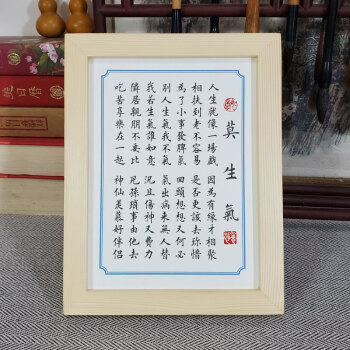 莫生氣
人生就像一場戲 因為有緣才相聚
相扶到老不容易 是否更該去珍惜
為了小事發脾氣 回頭想想又何必
別人生氣我不氣 氣出病來無人替
我若生氣誰如意 況且傷神又費力
隣居親朋不要比 兒孫瑣事由他去
吃苦享樂在一起 神仙羡慕好伴侶